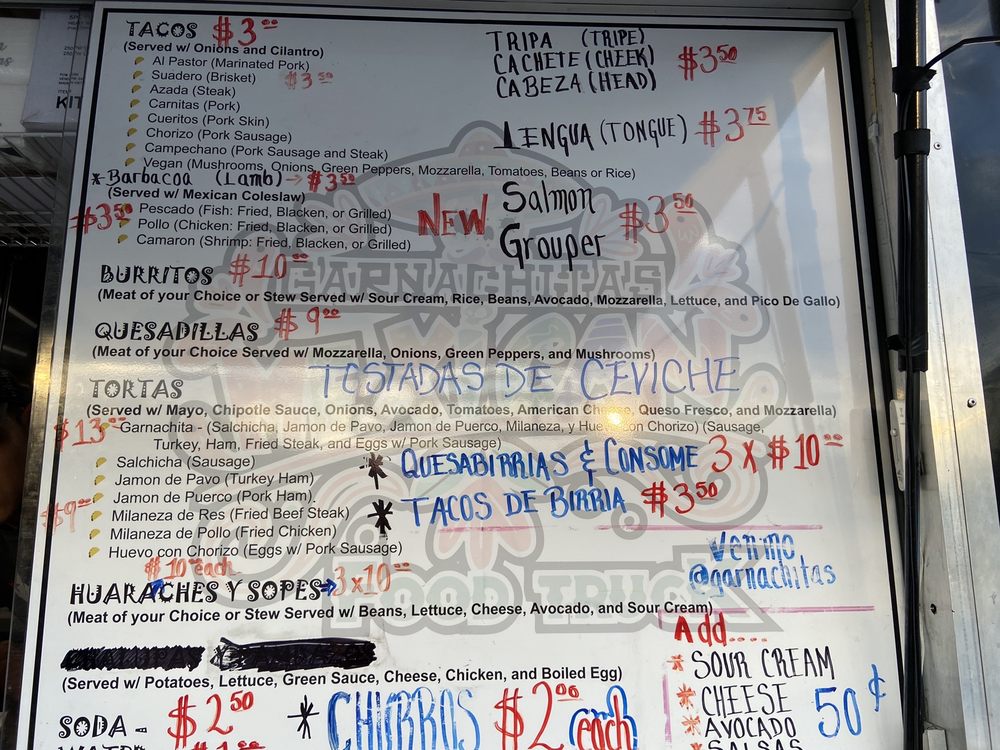 TACOS $3⁰⁰
(Served w/ Onions and Cilantro)
Al Pastor (Marinated Pork)
Suadero (Brisket) $3⁵⁰
Azada (Steak)
Carnitas (Pork)
Cueritos (Pork Skin)
Chorizo (Pork Sausage)
Campechano (Pork Sausage and Steak)
Vegan (Mushrooms, Onions, Green Peppers, Mozzarella, Tomatoes, Beans or Rice)
*Barbacoa (Lamb) → $3⁵⁰
(Served w/ Mexican Coleslaw)
$3⁵⁰
Pescado (Fish: Fried, Blacken, or Grilled)
Pollo (Chicken: Fried, Blacken, or Grilled)
Camaron (Shrimp: Fried, Blacken, or Grilled)
TRIPA (TRIPE)
CACHETE (CHEEK) $3⁵⁰
CABEZA (HEAD)
LENGUA (TONGUE) $3⁷⁵
NEW Salmon $3⁵⁰
Grouper
BURRITOS $10⁰⁰
(Meat of your Choice or Stew Served w/ Sour Cream, Rice, Beans, Avocado, Mozzarella, Lettuce, and Pico De Gallo)
QUESADILLAS $9⁰⁰
(Meat of your Choice Served w/ Mozzarella, Onions, Green Peppers, and Mushrooms)
TOSTADAS DE CEVICHE
TORTAS
(Served w/ Mayo, Chipotle Sauce, Onions, Avocado, Tomatoes, American Cheese, Queso Fresco, and Mozzarella)
$13⁰⁰ Garnachita - (Salchicha, Jamon de Pavo, Jamon de Puerco, Milaneza, y Huevo con Chorizo) (Sausage,
Turkey, Ham, Fried Steak, and Eggs w/ Pork Sausage)
Salchicha (Sausage)
Jamon de Pavo (Turkey Ham)
Jamon de Puerco (Pork Ham).
$9⁰⁰ Milaneza de Res (Fried Beef Steak)
Milaneza de Pollo (Fried Chicken)
Huevo con Chorizo (Eggs w/ Pork Sausage)
* QUESABIRRIAS & CONSOME 3 X $10⁰⁰
* TACOS DE BIRRIA $3⁵⁰
Venmo
@garnachitas
$10 each
HUARACHES Y SOPES → 3x10⁰⁰
(Meat of your Choice or Stew Served w/ Beans, Lettuce, Cheese, Avocado, and Sour Cream)
(Served w/ Potatoes, Lettuce, Green Sauce, Cheese, Chicken, and Boiled Egg)
SODA - $2⁵⁰
* CHURROS $2⁰⁰ each
Add....
* SOUR CREAM
* CHEESE 50¢
* AVOCADO
* SALSAS
GARNACHITAS
MEXICAN
FOOD TRUCK
KIT